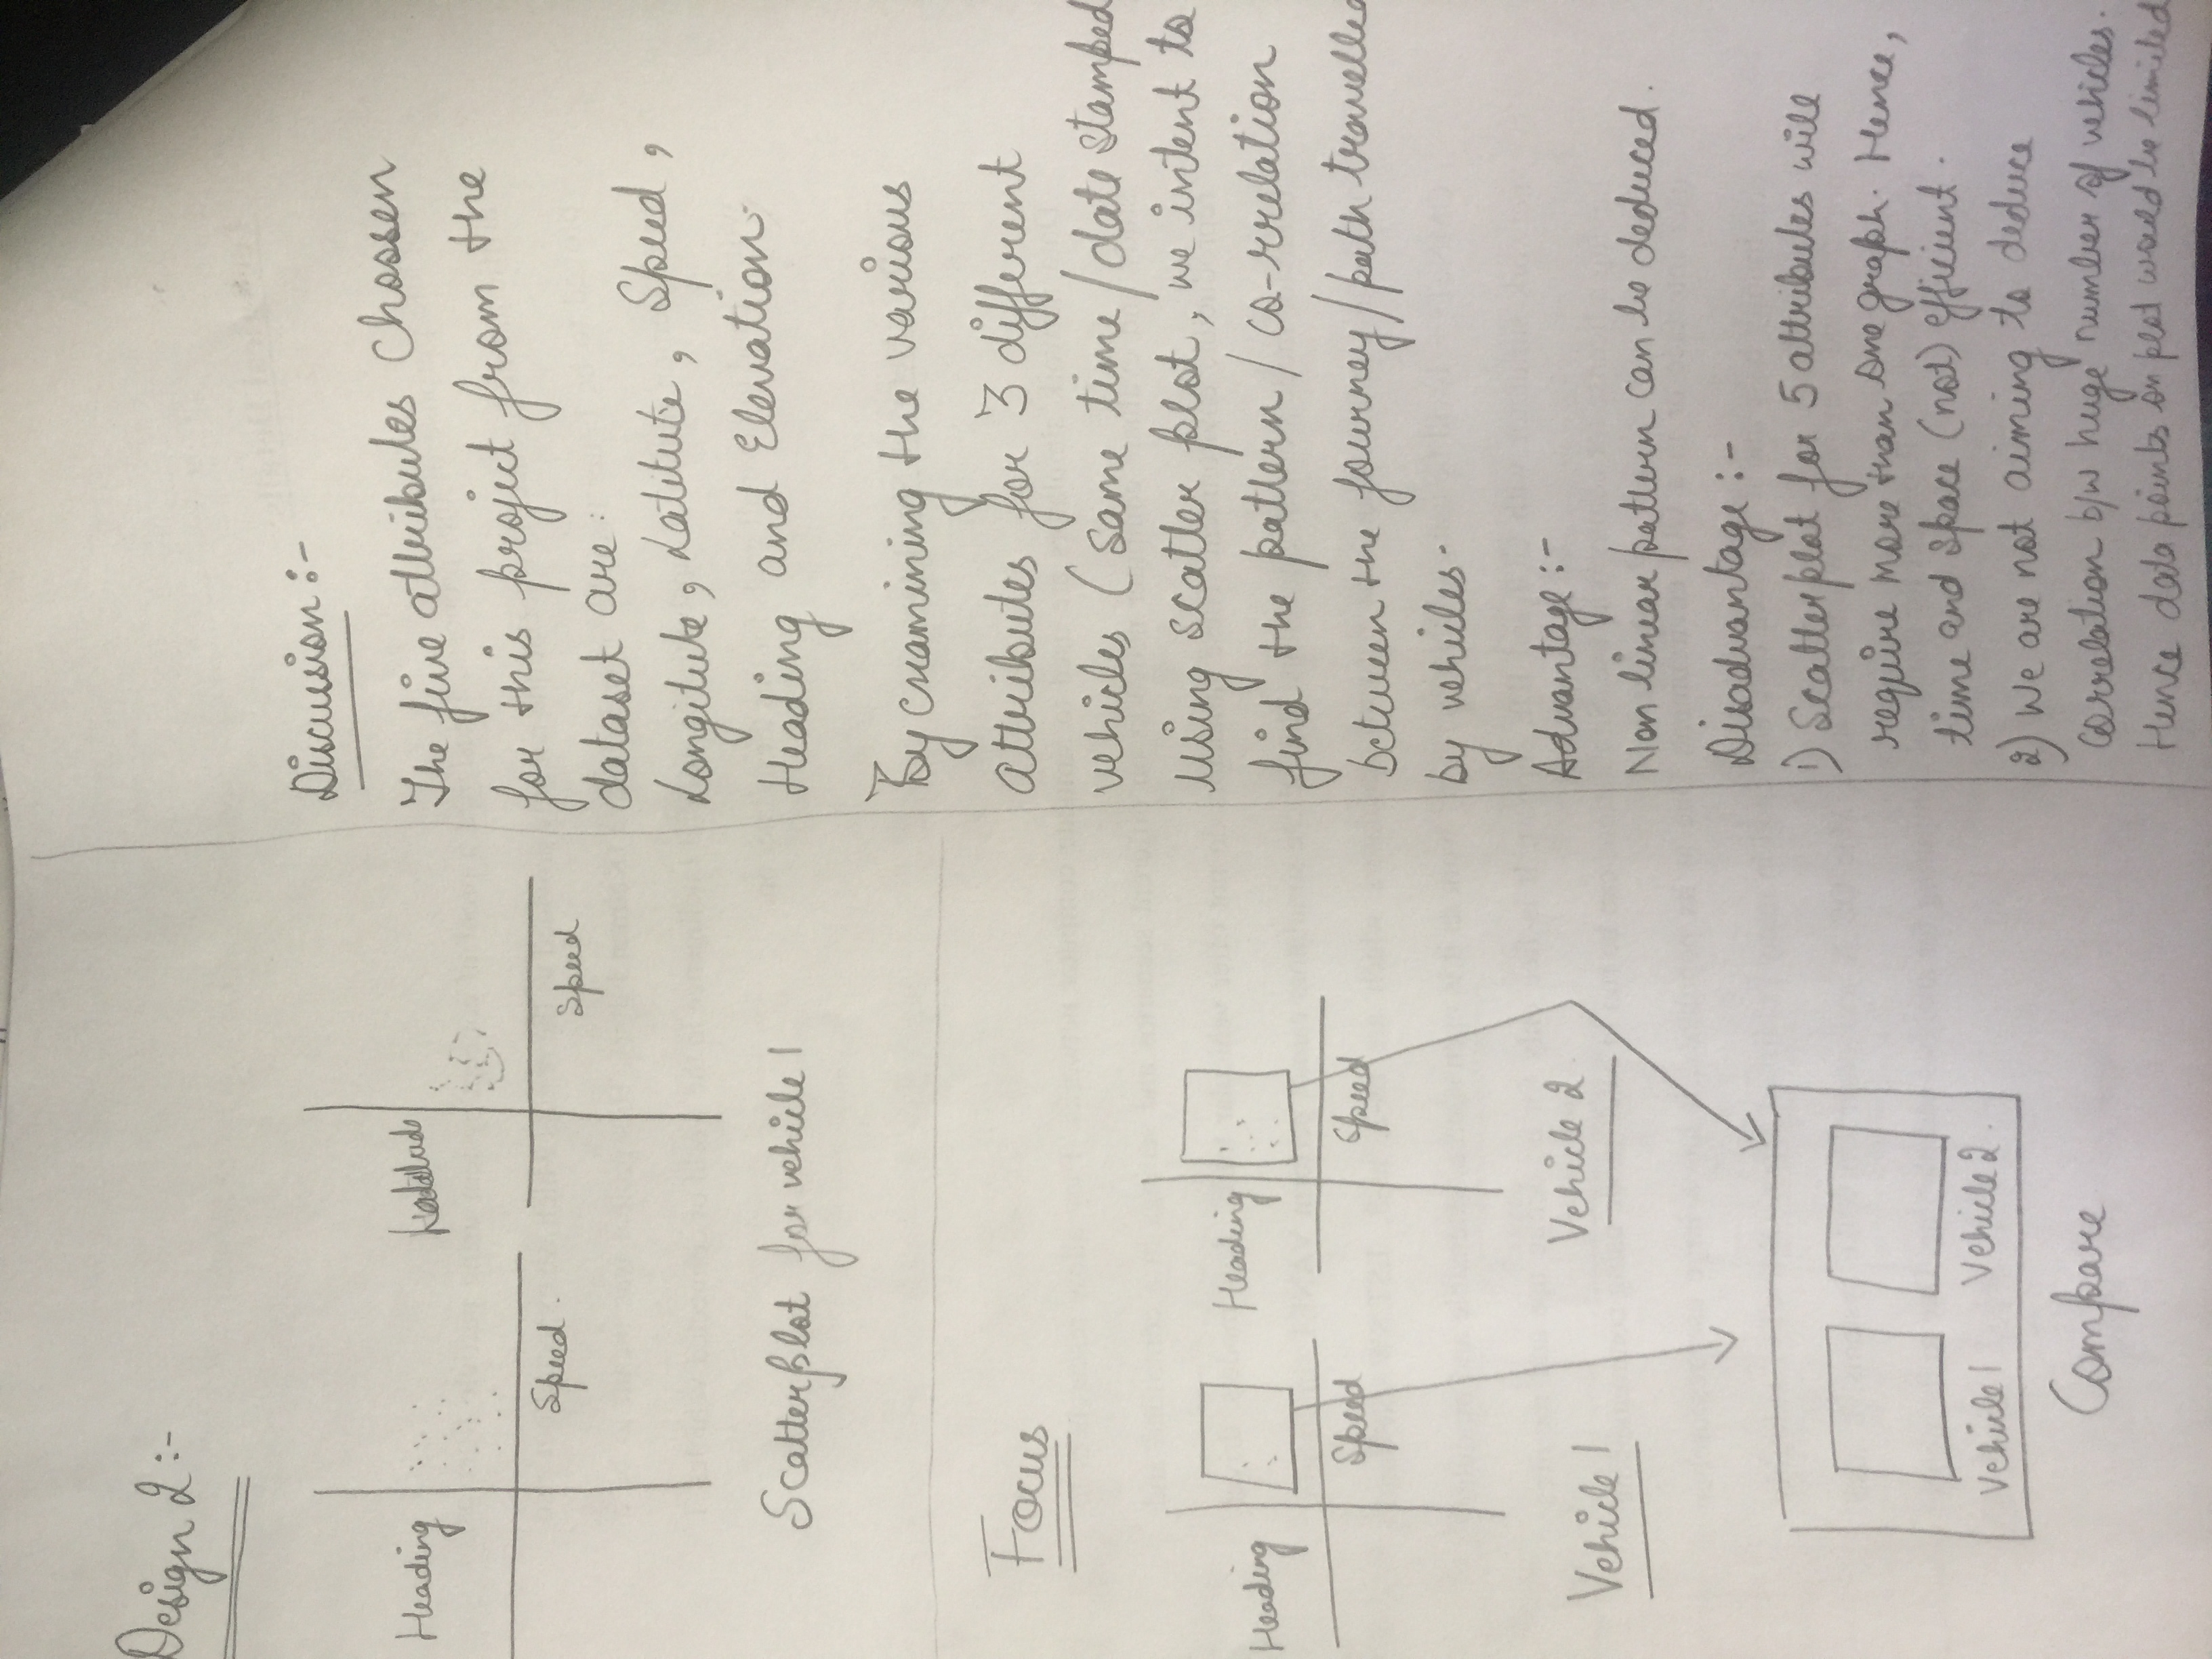 Design 2 :-
Heading
Speed.
Speed
Scatterplot for vehicle 1
Focus
Heading
Speed
Heading
Speed
Vehicle 1
Vehicle 2
Vehicle 1
Vehicle 2.
Compare
Discussion :-
The five attributes Choosen
for this project from the
dataset are:
Longitute, Latitute, Speed,
Heading and Elevation.
By examining the various
attributes for 3 different
vehicles (same time/date stamped
using scatter plot, we intent to
find the pattern / co-rrelation
between the journey/path travelled
by vehicles.
Advantage :-
Non linear pattern can be deduced.
Disadvantage :-
1) Scatterplot for 5 attributes will
require more than one graph. Hence,
time and space (not) efficient.
2) We are not aiming to deduce
correlation b/w huge number of vehicles.
Hence data points on plot would be limited